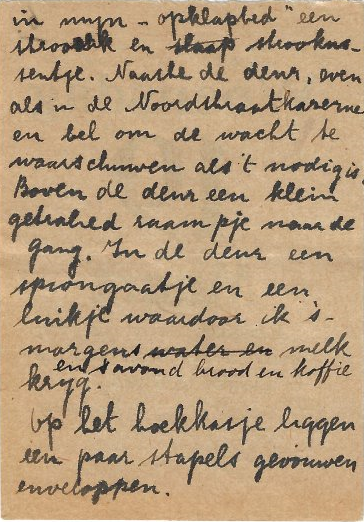 in mijn "opklapbed" een
stroozak en slaap strookus-
sentje. Naast de deur, even
als in de Noordstraatkazerne
en bel om de wacht te
waarschuwen als 't nodig is
Boven de deur een klein
getralied raampje naar de
gang. In de deur een
spiongaatje en een
luikje waardoor ik 's-
morgens water en melk
en 's avond brood en koffie
kryg.
Op het hoekkasje liggen
een paar stapels gevouwen
enveloppen.